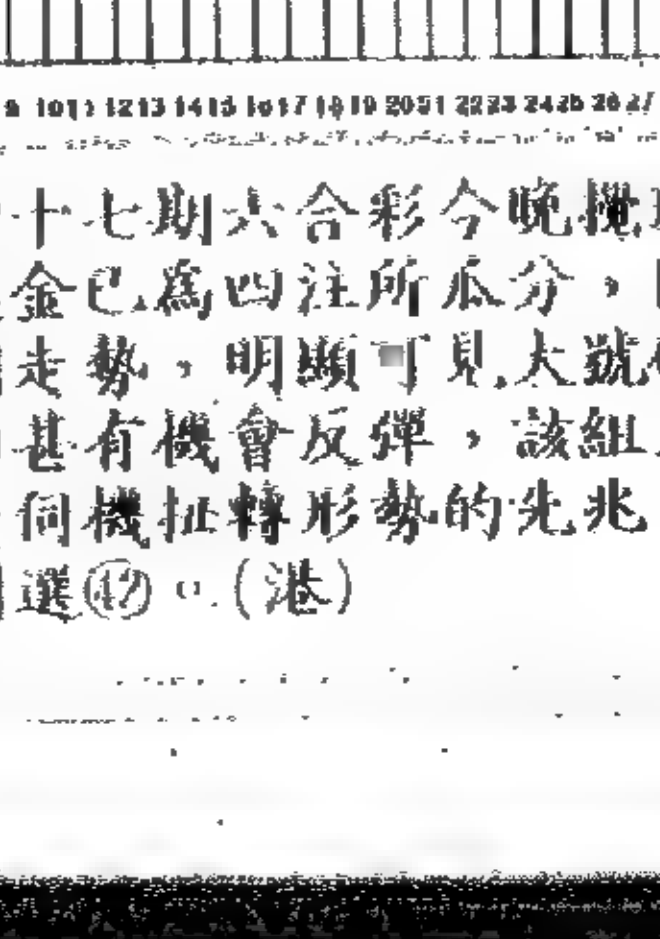 9 10 11 12 13 14 15 16 17 18 19 20 21 22 23 24 25 26 27
十七期六合彩今晚攪
金已為四注所瓜分，
走勢，明顯可見大號
甚有機會反彈，該組
伺機扭轉形勢的先兆
選㊼。(港)